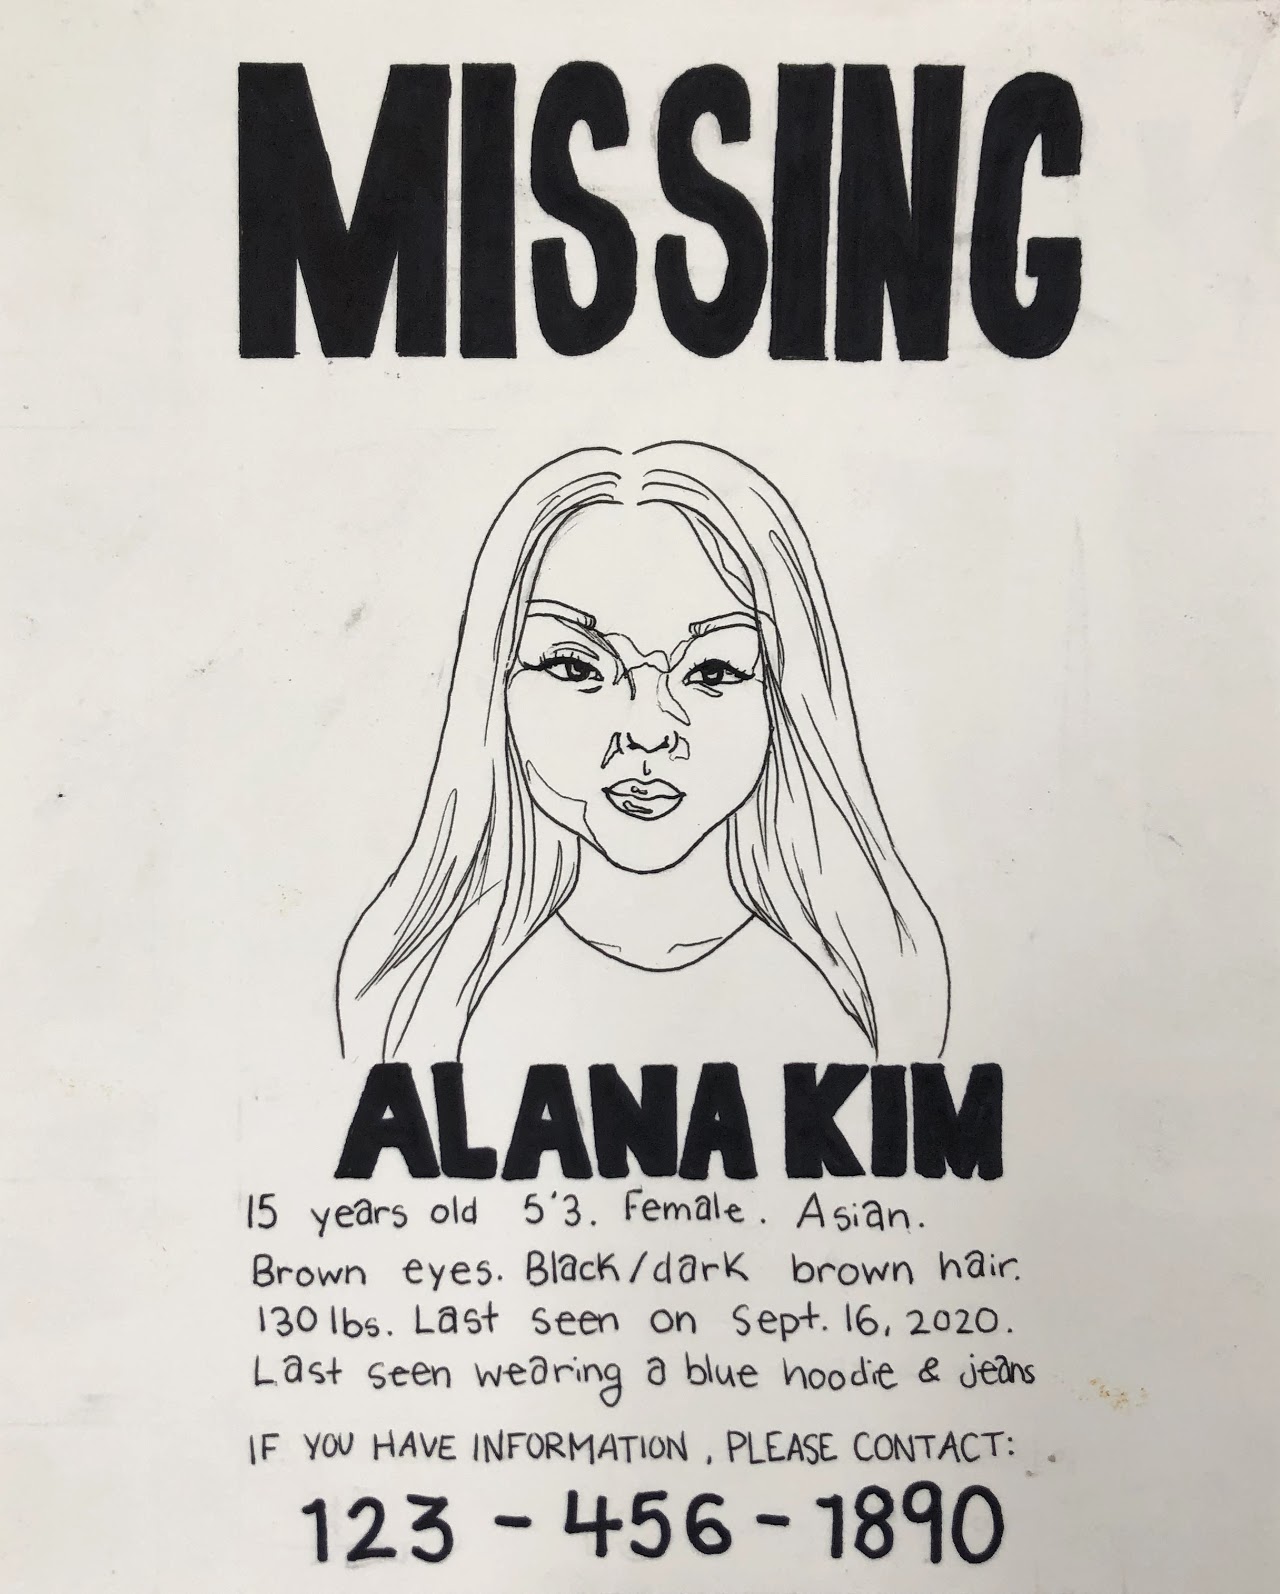 MISSING
ALANA KIM
15 years old 5'3. Female. Asian.
Brown eyes. Black/dark brown hair.
130 lbs. Last seen on Sept. 16, 2020.
Last seen wearing a blue hoodie & jeans
IF YOU HAVE INFORMATION, PLEASE CONTACT:
123-456-1890